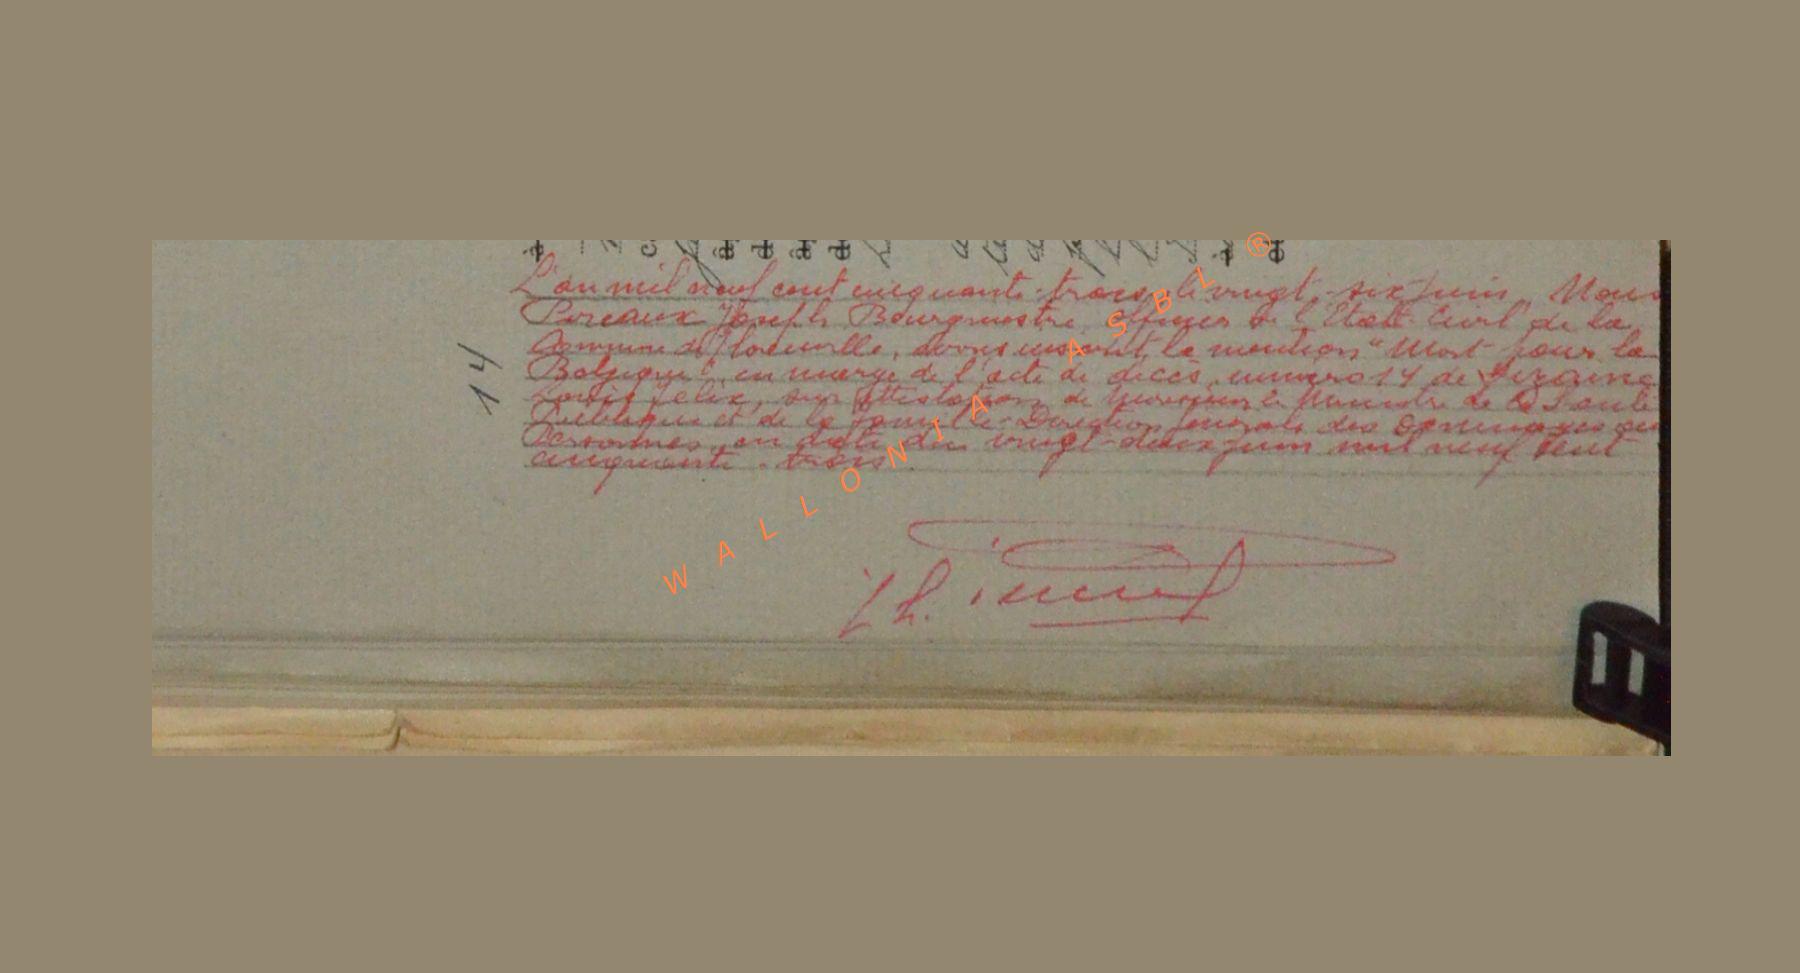 14
L'an mil neuf cent cinquante-trois le vingt-six Juin, Nous
Joseph Bourgmestre, Officier de l'Etat Civil de la
Commune de Florenville, avons inscrit, la mention "Mort pour la
Belgique", en marge de l'acte de décès, numéro 14 de
Louis Félix, sur attestation de Monsieur le Ministre de la Santé
Publique et de la Famille - Direction générale des Dommages aux
Personnes, en date du vingt-deux Juin mil neuf cent
cinquante-trois.
WALLONIA ASBL ®